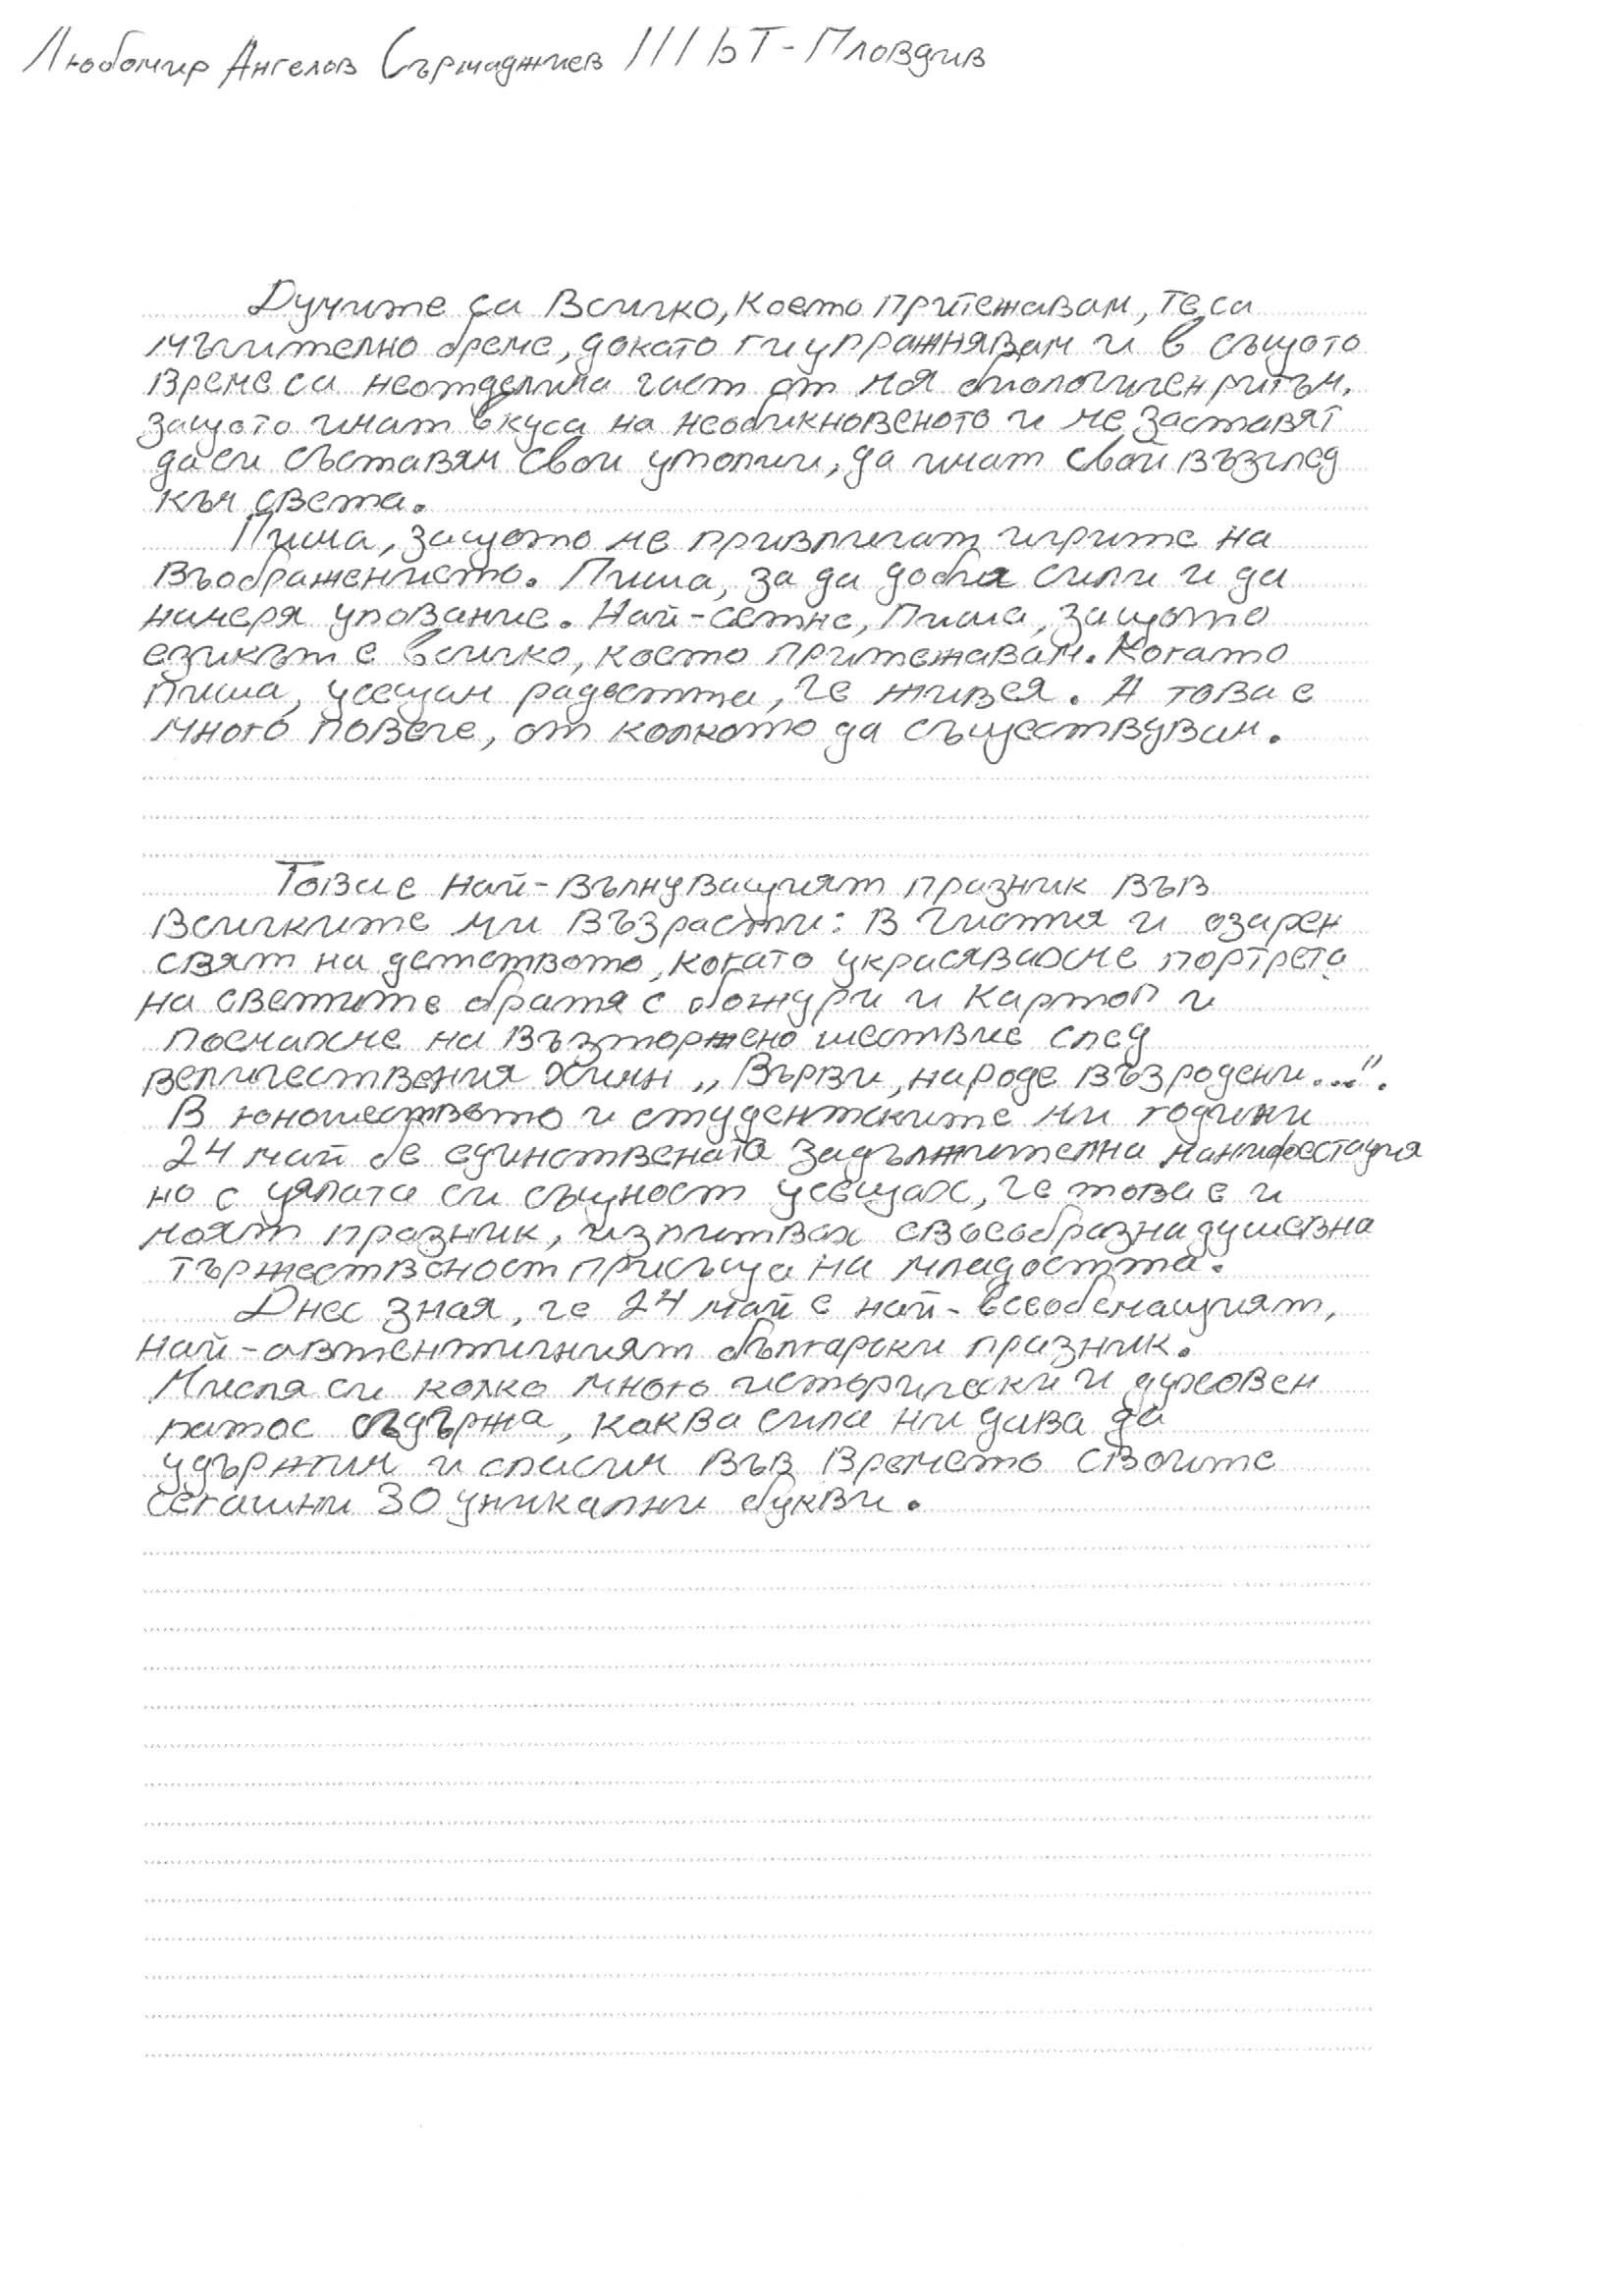 Любомир Ангелов Сърмаджиев III ЬТ - Пловдив
Думите са всичко, което притежавам, те са
мъчително бреме, докато ги упражнявам и в същото
време са неотделима част от моя биологичен ритъм,
защото имат вкуса на необикновеното и ме заставят
да си съставям свои утопии, да имат свой възглед
към света.
Пиша, защото ме привличат игрите на
въображението. Пиша, за да добия сили и да
намеря упование. Най-сетне, пиша, защото
езикът е всичко, което притежавам. Когато
пиша, усещам радостта, че живея. А това е
много повече, от колкото да съществувам.
Това е най-вълнуващият празник във
всичките ми възрасти: в чистия и озарен
свят на детството, когато украсявахме портрета
на светите братя с божури и картоп и
поемахме на възторжено шествие след
величествения химн „Върви, народе възродени...".
В юношеството и студентските ми години
24 май бе единствената задължителна манифестация
но с цялата си същност усещах, че това е и
моят празник, изпитвах своеобразна душевна
тържественост присъща на младостта.
Днес зная, че 24 май е най-всеобемащият,
най-автентичният български празник.
Мисля си колко много исторически и духовен
патос съдържа, каква сила ни дава да
удържим и спасим във времето своите
сегашни 30 уникални букви.